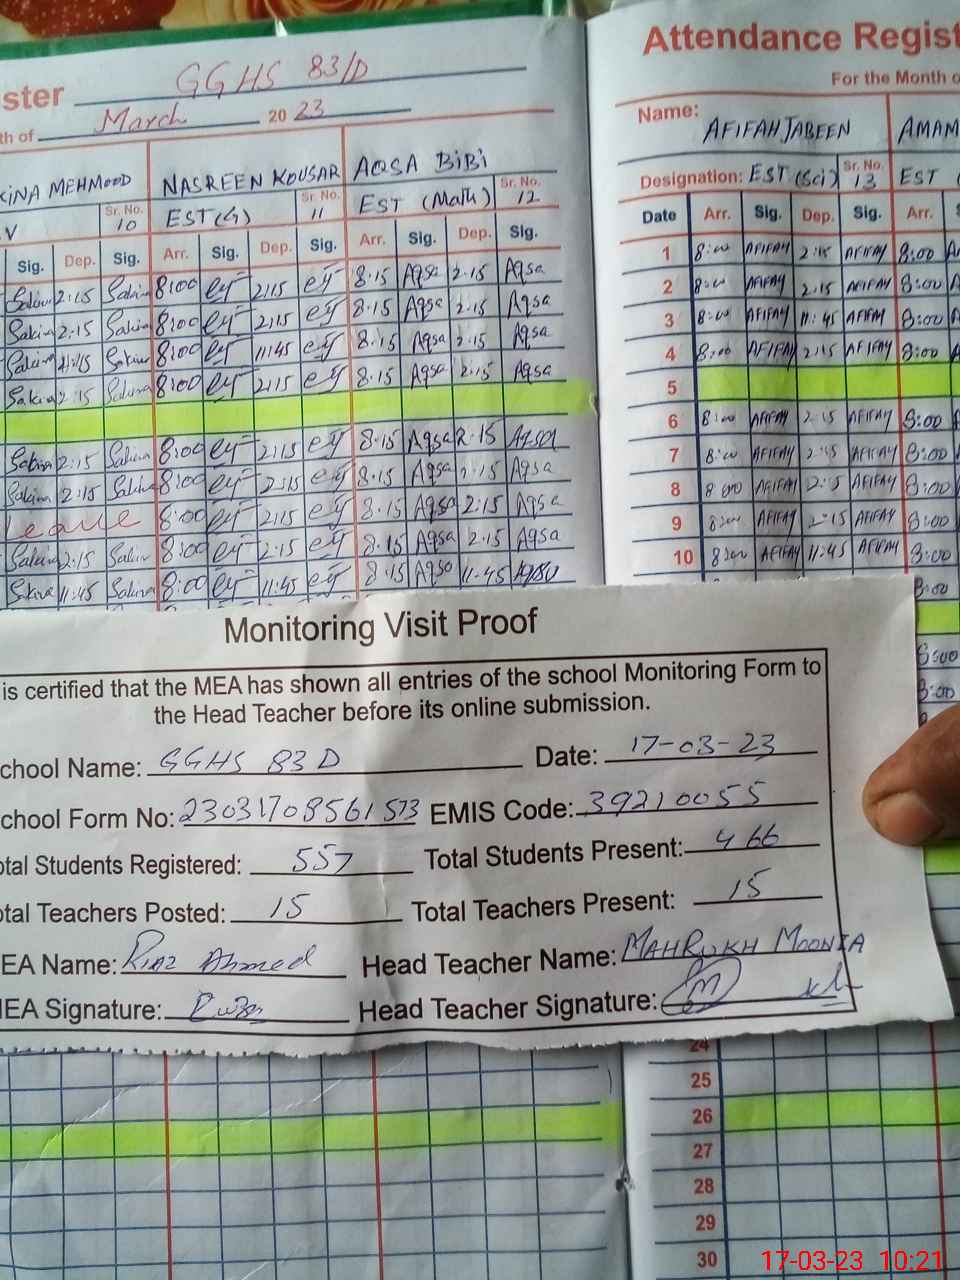 ster GGHS 83/D
th of March 20 23
KINA MEHMOOD NASREEN KOUSAR AQSA BiBi
V Sr. No. 10 EST(G) Sr. No. 11 EST (Math) Sr. No. 12
Sig. Dep. Sig. Arr. Sig. Dep. Sig. Arr. Sig. Dep. Sig.
2:15 Sakina 8:00 2:15 8:15 Aqsa 2:15 Aqsa
Sakina 2:15 Sakina 8:00 2:15 8:15 Aqsa 2:15 Aqsa
Sakina 11:45 Sakina 8:00 11:45 8:15 Aqsa 2:15 Aqsa
Sakina 2:15 Sakina 8:00 2:15 8:15 Aqsa 2:15 Aqsa
Sakina 2:15 Sakina 8:00 2:15 8:15 Aqsa 2:15 Aqsa
Sakina 2:15 Sakina 8:00 2:15 8:15 Aqsa 2:15 Aqsa
Leave 8:00 2:15 8:15 Aqsa 2:15 Aqsa
Sakina 2:15 Sakina 8:00 2:15 8:15 Aqsa 2:15 Aqsa
Sakina 11:45 Sakina 8:00 11:45 8:15 Aqsa 11:45
Attendance Regist
For the Month o
Name: AFIFAH JABEEN AMAM
Designation: EST (Sci) Sr. No. 13 EST
Date Arr. Sig. Dep. Sig. Arr.
1 8:00 AFIFAH 2:15 AFIFAH 8:00
2 8:00 AFIFAH 2:15 AFIFAH 8:00
3 8:00 AFIFAH 11:45 AFIFAH 8:00
4 8:00 AFIFAH 2:15 AFIFAH 8:00
5
6 8:00 AFIFAH 2:15 AFIFAH 8:00
7 8:00 AFIFAH 2:15 AFIFAH 8:00
8 8:00 AFIFAH 2:15 AFIFAH 8:00
9 8:00 AFIFAH 2:15 AFIFAH 8:00
10 8:00 AFIFAH 11:45 AFIFAH 8:00
8:00
8:00
8:00
Monitoring Visit Proof
is certified that the MEA has shown all entries of the school Monitoring Form to
the Head Teacher before its online submission.
chool Name: GGHS 83 D Date: 17-03-23
chool Form No: 23031708561573 EMIS Code: 39210055
otal Students Registered: 557 Total Students Present: 466
otal Teachers Posted: 15 Total Teachers Present: 15
EA Name: Riaz Ahmed Head Teacher Name: MAHRUKH MOONIA
MEA Signature: Head Teacher Signature:
24
25
26
27
28
29
30
17-03-23 10:21